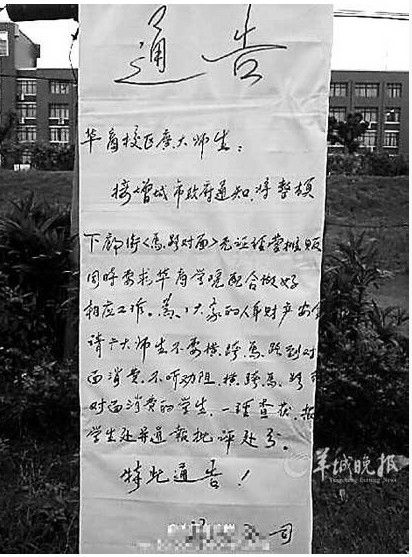 通告
华商校区广大师生：
接增城市政府通知，将整顿
下廊街〈马路对面〉无证经营摊贩
同时要求华商学院配合做好
相应工作。为了大家的人身财产安全
请广大师生不要横跨马路到对
面消费，不听劝阻，横跨马路到
对面消费的学生，一经查获，报
学生处并通报批评处分。
特此通告！
司
羊城晚报
Yangcheng Evening News